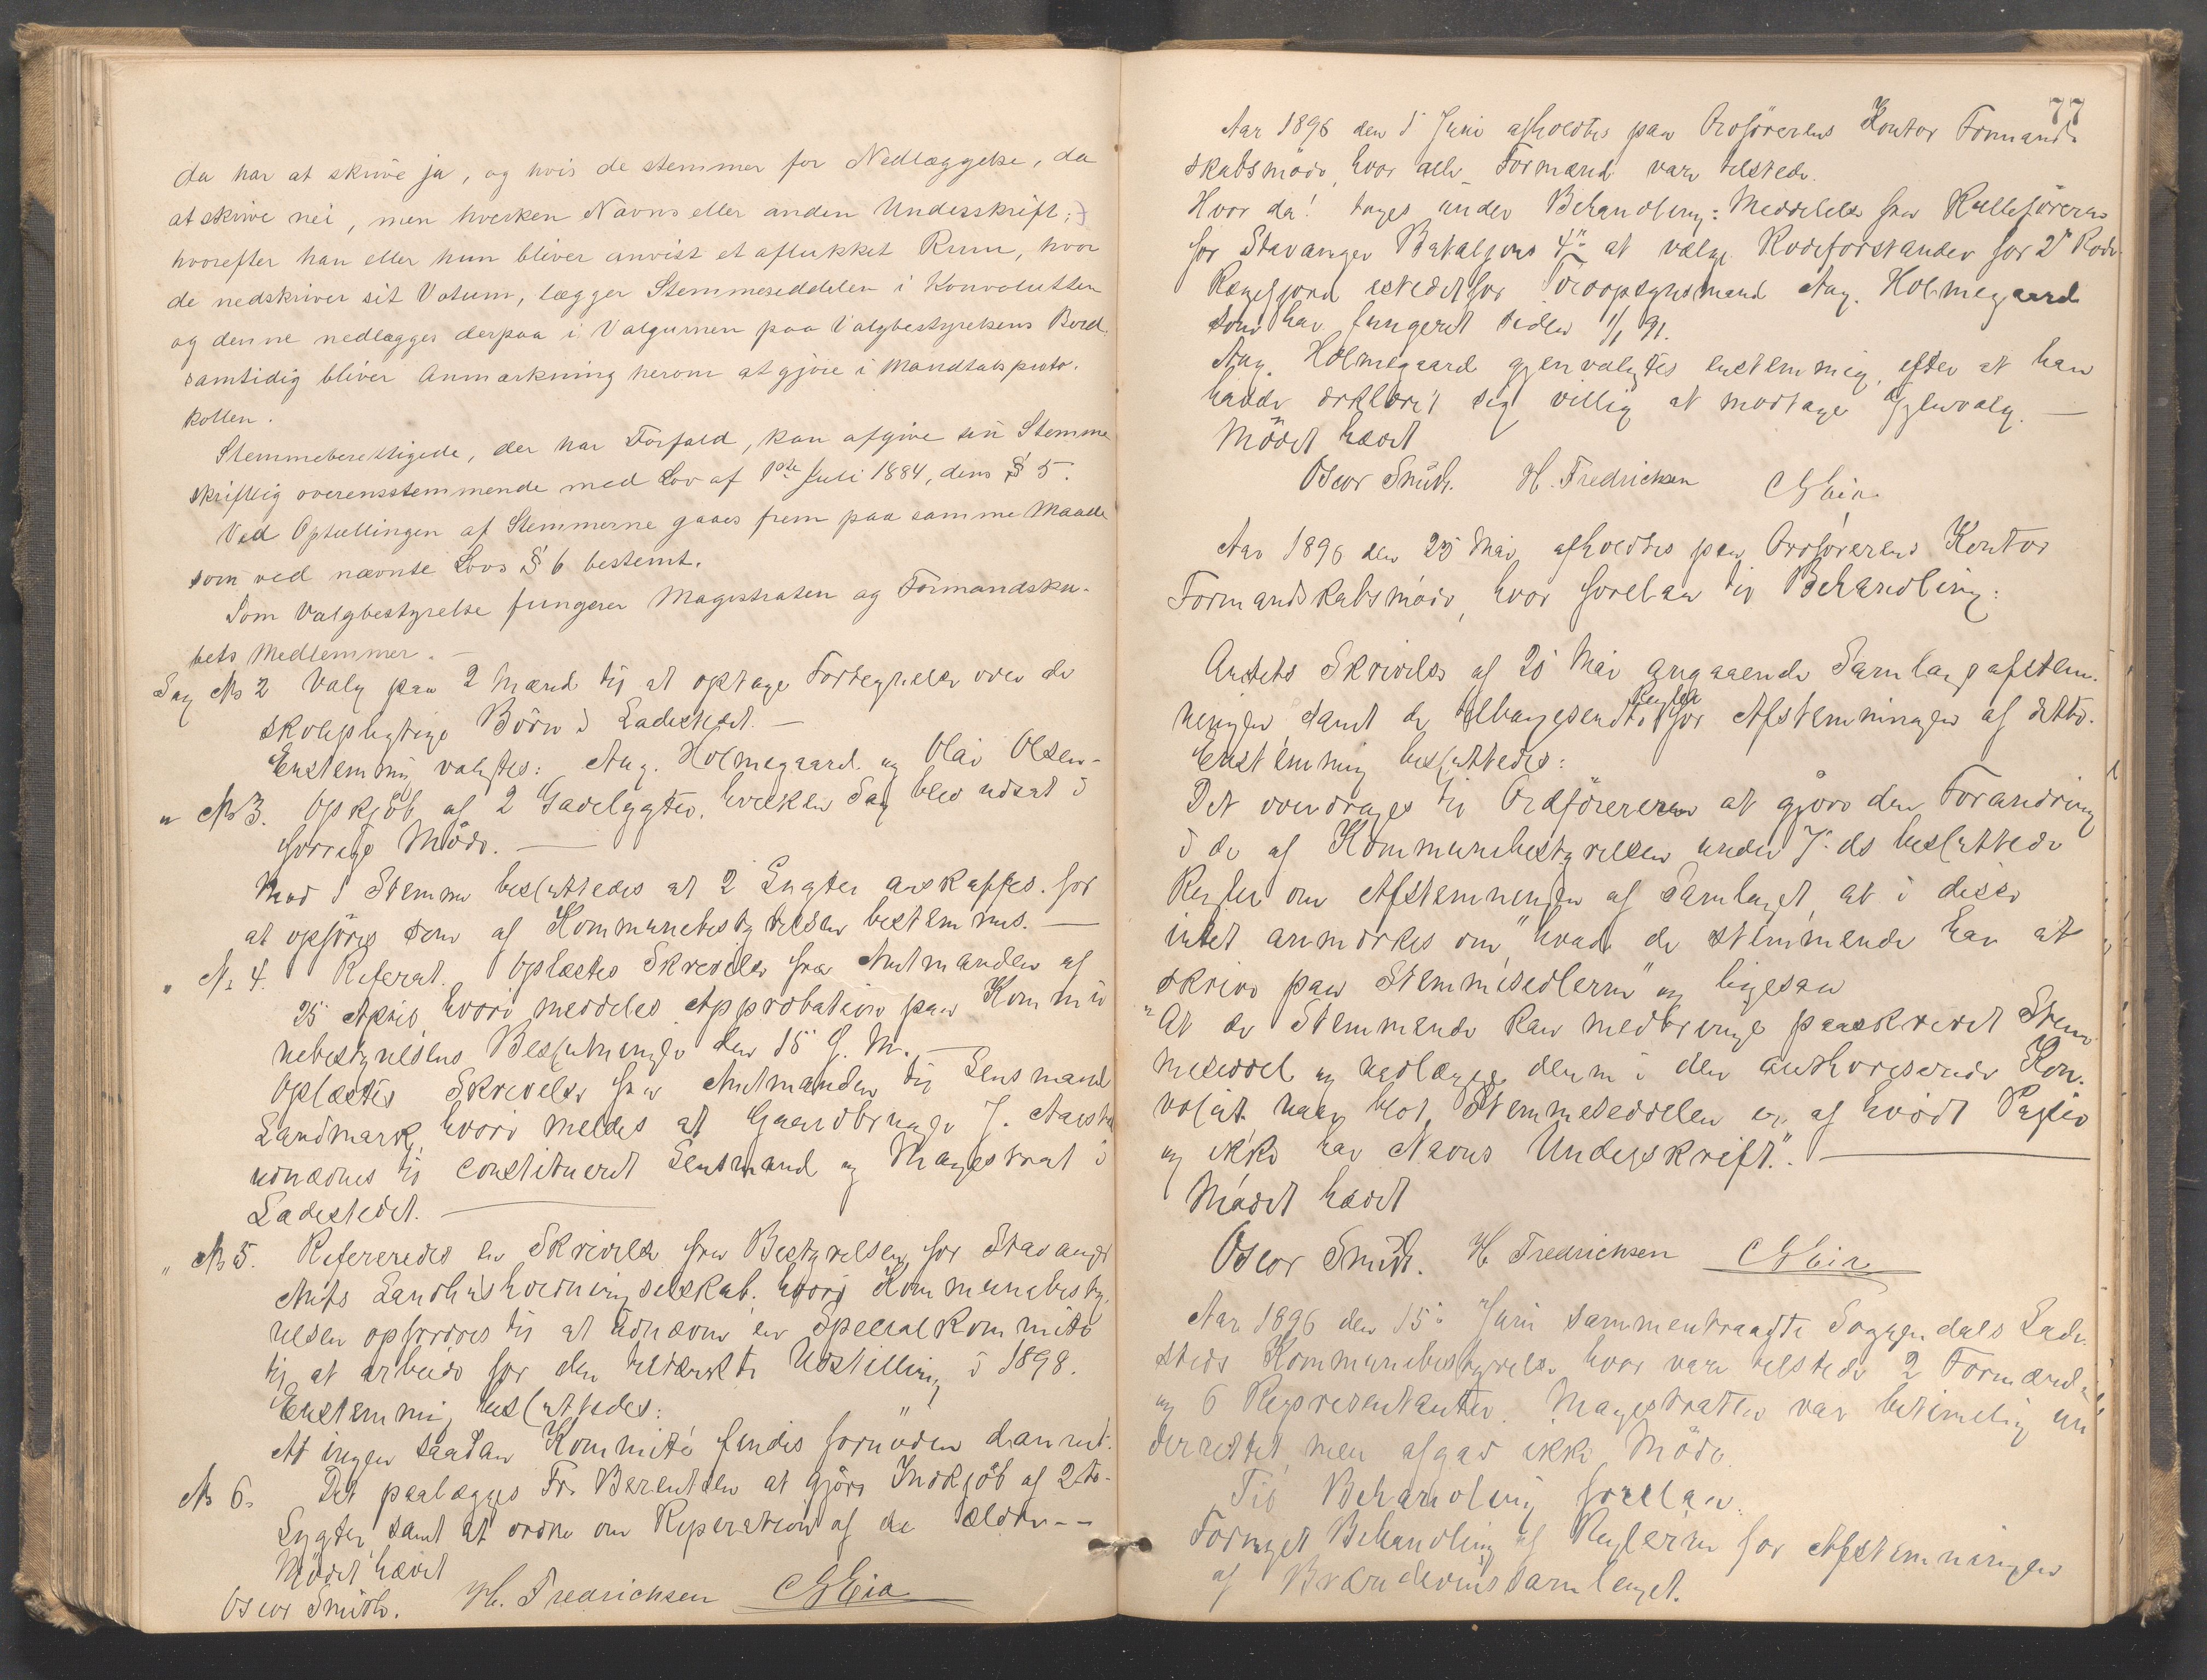 da har at skrive ja, og hvis de stemmer for Nedlæggelse, da
at skrive nei, men hverken Navns eller anden Underskrift;
hvorefter han eller hun bliver anvist et aflukket Rum, hvor
de nedskriver sit Votum, lægger Stemmeseddelen i Konvolutten
og denne nedlægges derpaa i Valgurnen paa Valgbestyrelsens Bord.
samtidig bliver Anmærkning herom at gjøre i Mandtalsproto-
kollen.
Stemmeberettigede, der har Forfald, kan afgive sin Stemme
skriftlig overensstemmende med Lov af 1ste Juli 1884, dens § 5.
Ved Optællingen af Stemmerne gaaes frem paa samme Maade
som ved nævnte Lovs § 6 bestemt.
Som Valgbestyrelse fungerer Magistraten og Formandska-
bets Medlemmer. —
Sag No 2 Valg paa 2 Mænd til at optage Fortegnelse over de
skolepligtige Börn i Ladestedet. —
Enstemmig valgtes: Aug. Holmegaard og Olai Olsen-
" No 3. Opkjöb af 2 Gadelygter, hvilken Sag blev udsat i
forrige Möde. —
Mod 1 Stemme besluttedes at 2 Lygter anskaffes for
at opföres som af Kommunebestyrelsen bestemmes. —
" No 4. Referat. Oplæstes Skrivelse fra Amtmanden af
25 April hvori meddeles Approbation paa Kommu
nebestyrelsens Beslutninge den 15 f. M. —
Oplæstes Skrivelse fra Amtmanden til Lensmand
Landmark, hvori meldes at Gaardbruger J. Aarstad
udnævnes til constitueret Lensmand og Magistrat i
Ladestedet. —
" No 5. Refereredes en Skrivelse fra Bestyrelsen for Stavanger
Amts Landhusholdningselskab. hvori Kommunebesty-
relsen opfordres til at udnævne en Specialkommité
til at arbeide for den tiltænkte Udstilling i 1898.
Enstemmig besluttedes:
At ingen saadan Kommité findes fornöden dannet.
No 6. Det paalægges Fr. Berentsen at gjöre Indkjöb af 2 to-
Lygter samt at ordne om Reperation af de ældre--
Mödet hævet
Oscar Smith. H. Fredrichsen C G Eia
77
Aar 1896 den 5 Juni afholdtes paa Ordförerens Kontor Formand-
skabsmöde, hvor alle Formænd vare tilstede.
Hvor da! toges under Behandling: Meddelelse fra Rulleföreren
for Stavanger Bataljons 4de at vælge Rodeforstander for 2den Rode
Rægefjord istedetfor Toldopsynsmand Aug. Holmegaard
som har fungeret siden 1/1 91.
Aug. Holmegaard gjenvalgtes enstemmig, efter at han
havde erklæret sig villig at modtage Gjenvalg. —
Mödet hævet
Oscar Smith. H. Fredrichsen C G Eia.
Aar 1896 den 25 Mai afholdtes paa Ordförerens Kontor
Formandskabsmöde, hvor forelaa til Behandling:
Amtets Skrivelse af 20 Mai angaaende Samlagsafstem-
ningen, samt de tilbagesendte Regler for Afstemningen af dette.
Enstemmig besluttedes:
Det overdrages til Ordföreren at gjöre den Forandring
i de af Kommunebestyrelsen under 7 ds besluttede
Regler om Afstemningen af Samlaget, at i disse
intet anmærkes om "hvad de stemmende har at
skrive paa Stemmesedlerne" og ligesaa
"At de Stemmende kan medbringe paaskrevet Stem-
meseddel og nedlægge denne i den authoriserede Kon-
volut naar blot Stemmeseddelen er af hvidt Papir
og ikke har Navns Underskrift". —
Mödet hævet
Oscar Smith. H Fredrichsen C G Eia
Aar 1896 den 15de Juni sammentraadte Soggendals Lade-
steds Kommunebestyrelse hvor vare tilstede 2 Formænd
og 6 Repræsentanter. Magistraten var betimelig un
derrettet, men afgav ikke Möde.
Til Behandling forelaa.
Fornyet Behandling af Reglerne for Afstemningen
af Brændevinssamlaget.